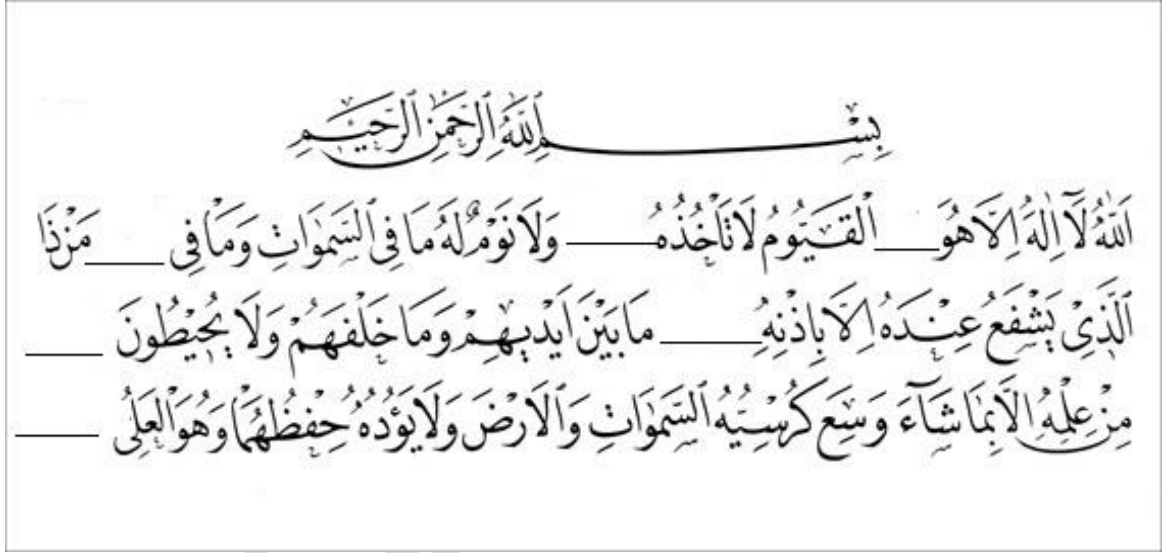 بِسْــــــمِ اللّٰهِ الرَّحْمٰنِ الرَّحِيمِ
اَللّٰهُ لَآ اِلٰهَ اِلَّا هُوَ ____ اَلْقَيُّومُ لَا تَأْخُذُهُ ____ وَلَا نَوْمٌ لَهُ مَا فِى السَّمٰوَاتِ وَمَا فِى ____ مَنْ ذَا
الَّذِى يَشْفَعُ عِنْدَهُ اِلَّا بِاِذْنِهِ ____ مَا بَيْنَ اَيْدِيهِمْ وَمَا خَلْفَهُمْ وَلَا يُحِيطُونَ ____
مِنْ عِلْمِهِ اِلَّا بِمَا شَآءَ وَسِعَ كُرْسِيُّهُ السَّمٰوَاتِ وَالْاَرْضَ وَلَا يَؤُدُهُ حِفْظُهُمَا وَهُوَ الْعَلِىُّ ____